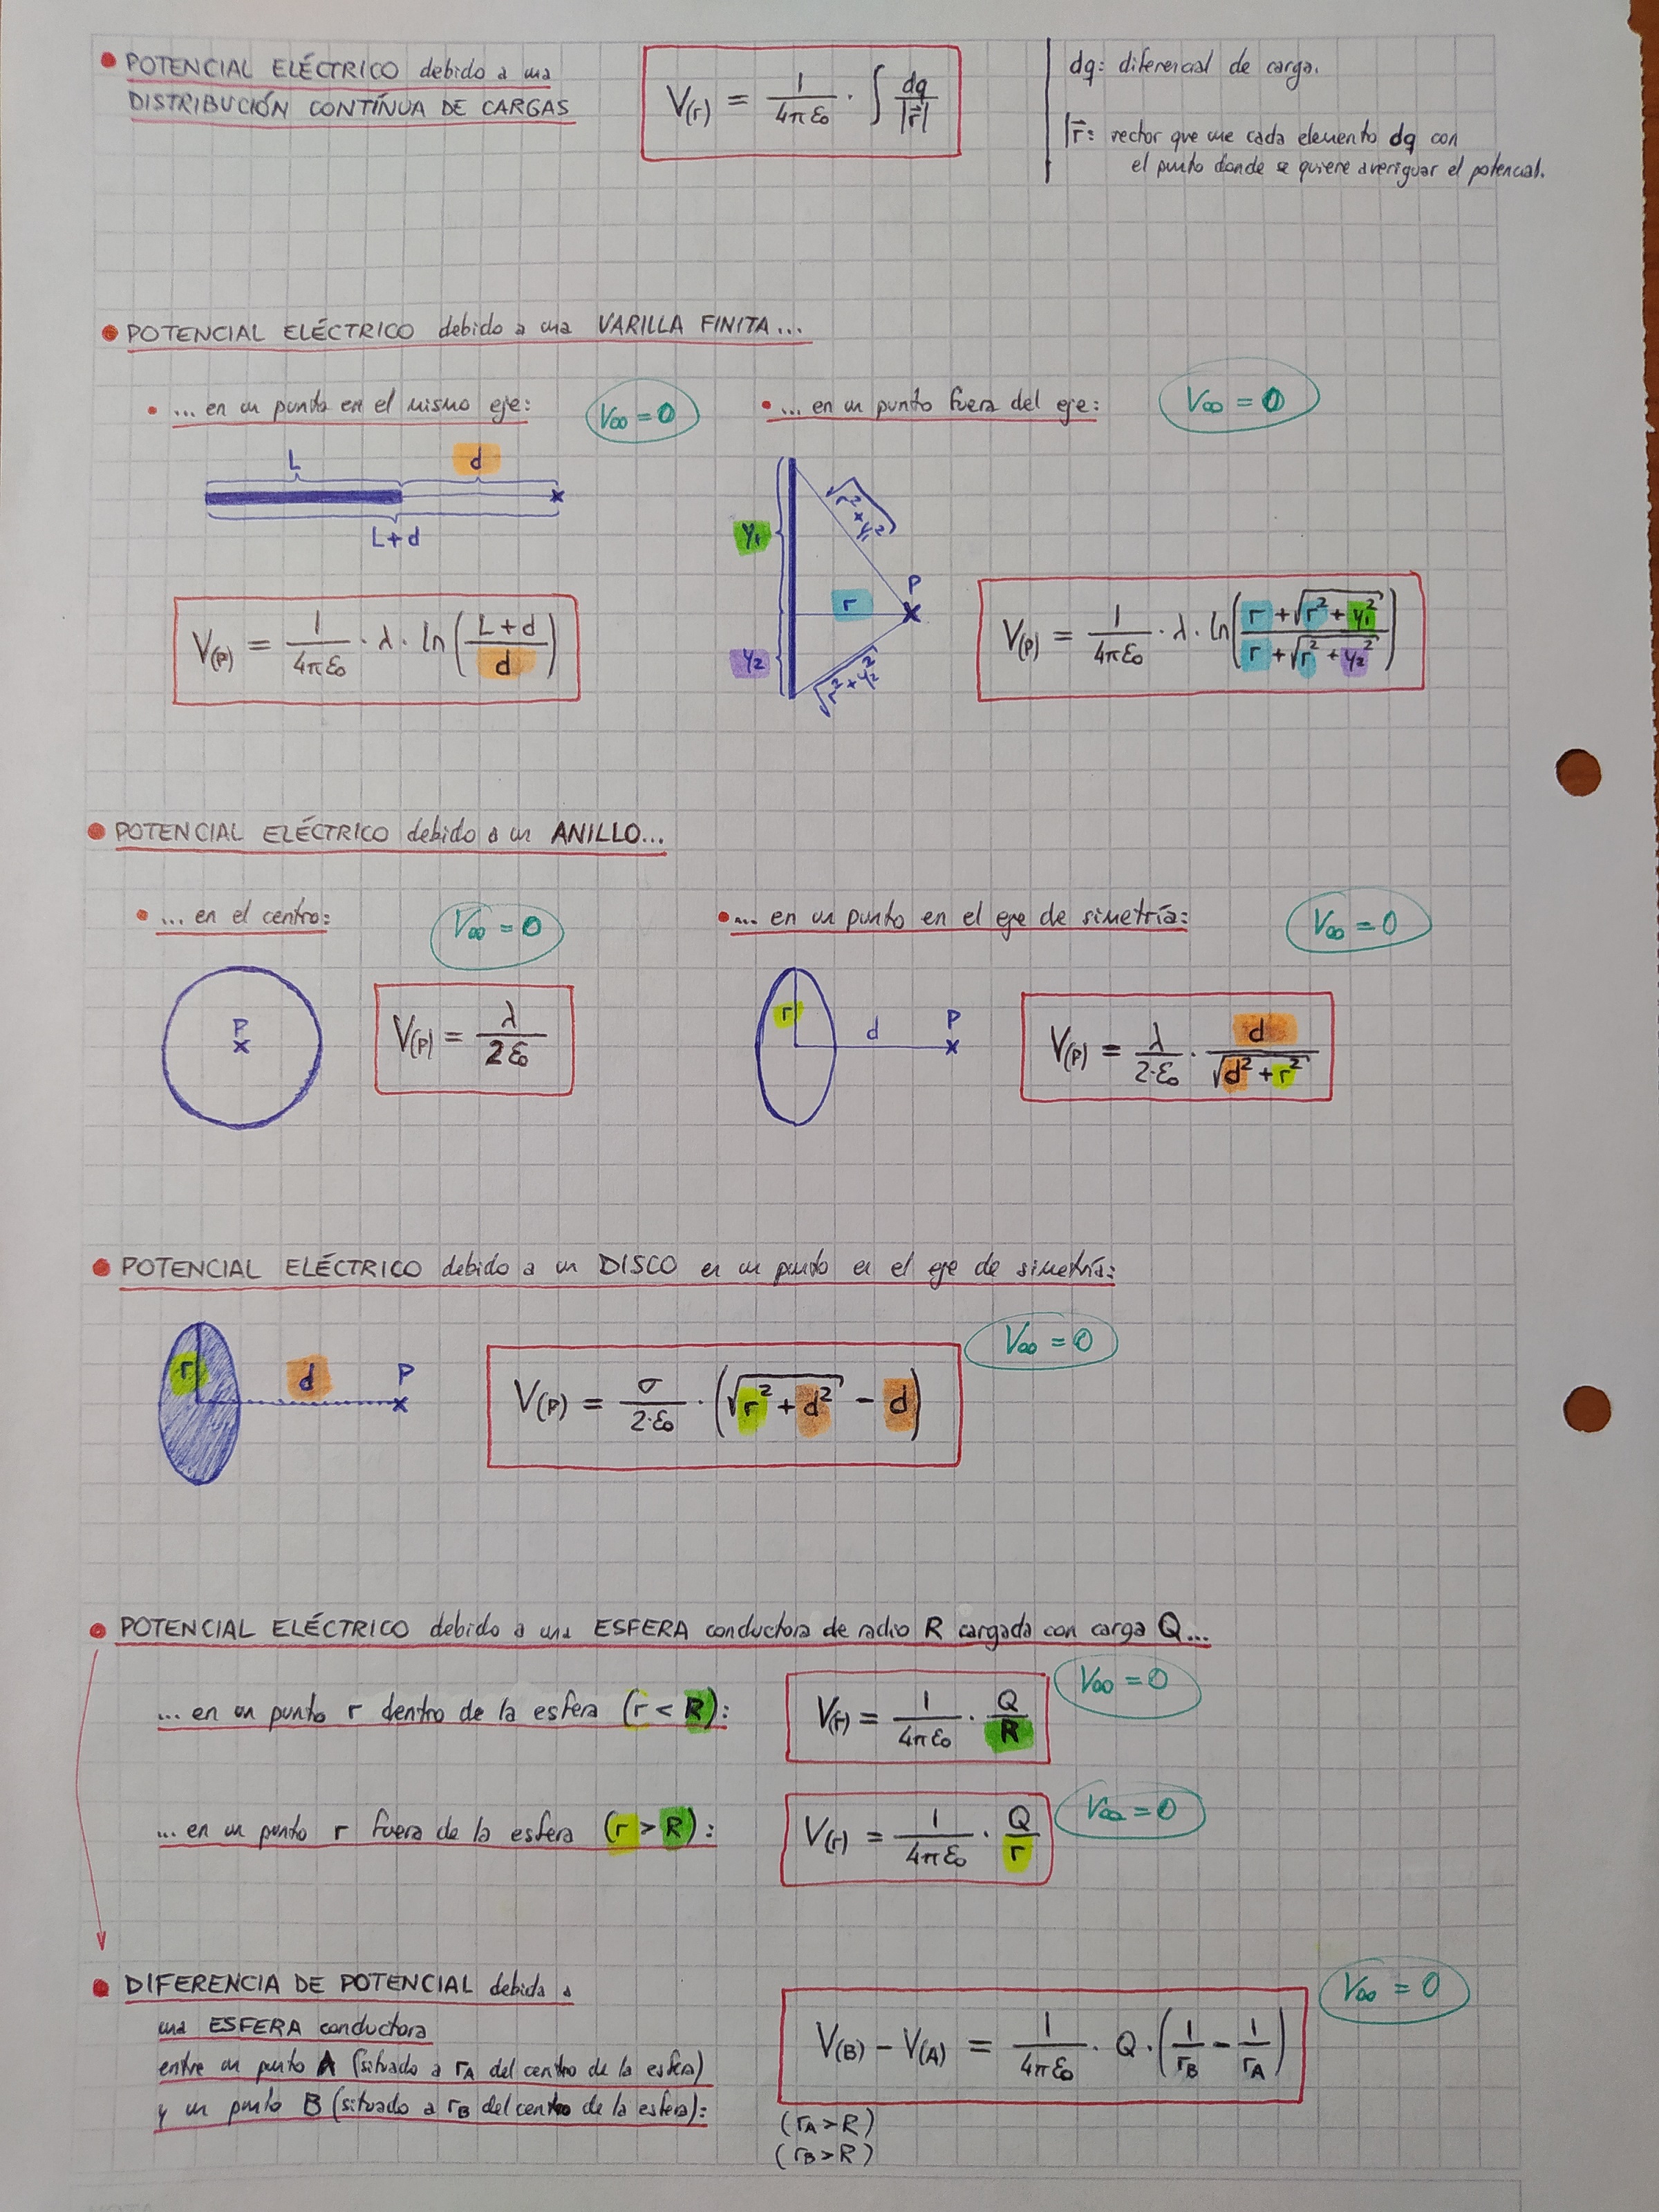 • POTENCIAL ELÉCTRICO debido a una
DISTRIBUCIÓN CONTÍNUA DE CARGAS
V(r) = 1/4πε₀ · ∫ dq/|r⃗|
dq: diferencial de carga.
|r⃗: vector que une cada elemento dq con
el punto donde se quiere averiguar el potencial.
• POTENCIAL ELÉCTRICO debido a una VARILLA FINITA...
• ... en un punto en el mismo eje:
V∞ = 0
L
d
L+d
V(P) = 1/4πε₀ · λ · ln((L+d)/d)
• ... en un punto fuera del eje:
V∞ = 0
y₁
√r²+y₁²
P
r
y₂
√r²+y₂²
V(P) = 1/4πε₀ · λ · ln((r+√r²+y₁²)/(r+√r²+y₂²))
• POTENCIAL ELÉCTRICO debido a un ANILLO...
• ... en el centro:
V∞ = 0
P
V(P) = λ/2ε₀
• ... en un punto en el eje de simetría:
V∞ = 0
r
d
P
V(P) = λ/2·ε₀ · d/√d²+r²
• POTENCIAL ELÉCTRICO debido a un DISCO en un punto en el eje de simetría:
V∞ = 0
r
d
P
V(P) = σ/2·ε₀ · (√r²+d² - d)
• POTENCIAL ELÉCTRICO debido a una ESFERA conductora de radio R cargada con carga Q...
... en un punto r dentro de la esfera (r < R):
V(r) = 1/4πε₀ · Q/R
V∞ = 0
... en un punto r fuera de la esfera (r > R):
V(r) = 1/4πε₀ · Q/r
V∞ = 0
• DIFERENCIA DE POTENCIAL debida a
una ESFERA conductora
entre un punto A (situado a rA del centro de la esfera)
y un punto B (situado a rB del centro de la esfera):
V(B) - V(A) = 1/4πε₀ · Q · (1/rB - 1/rA)
V∞ = 0
(rA > R)
(rB > R)